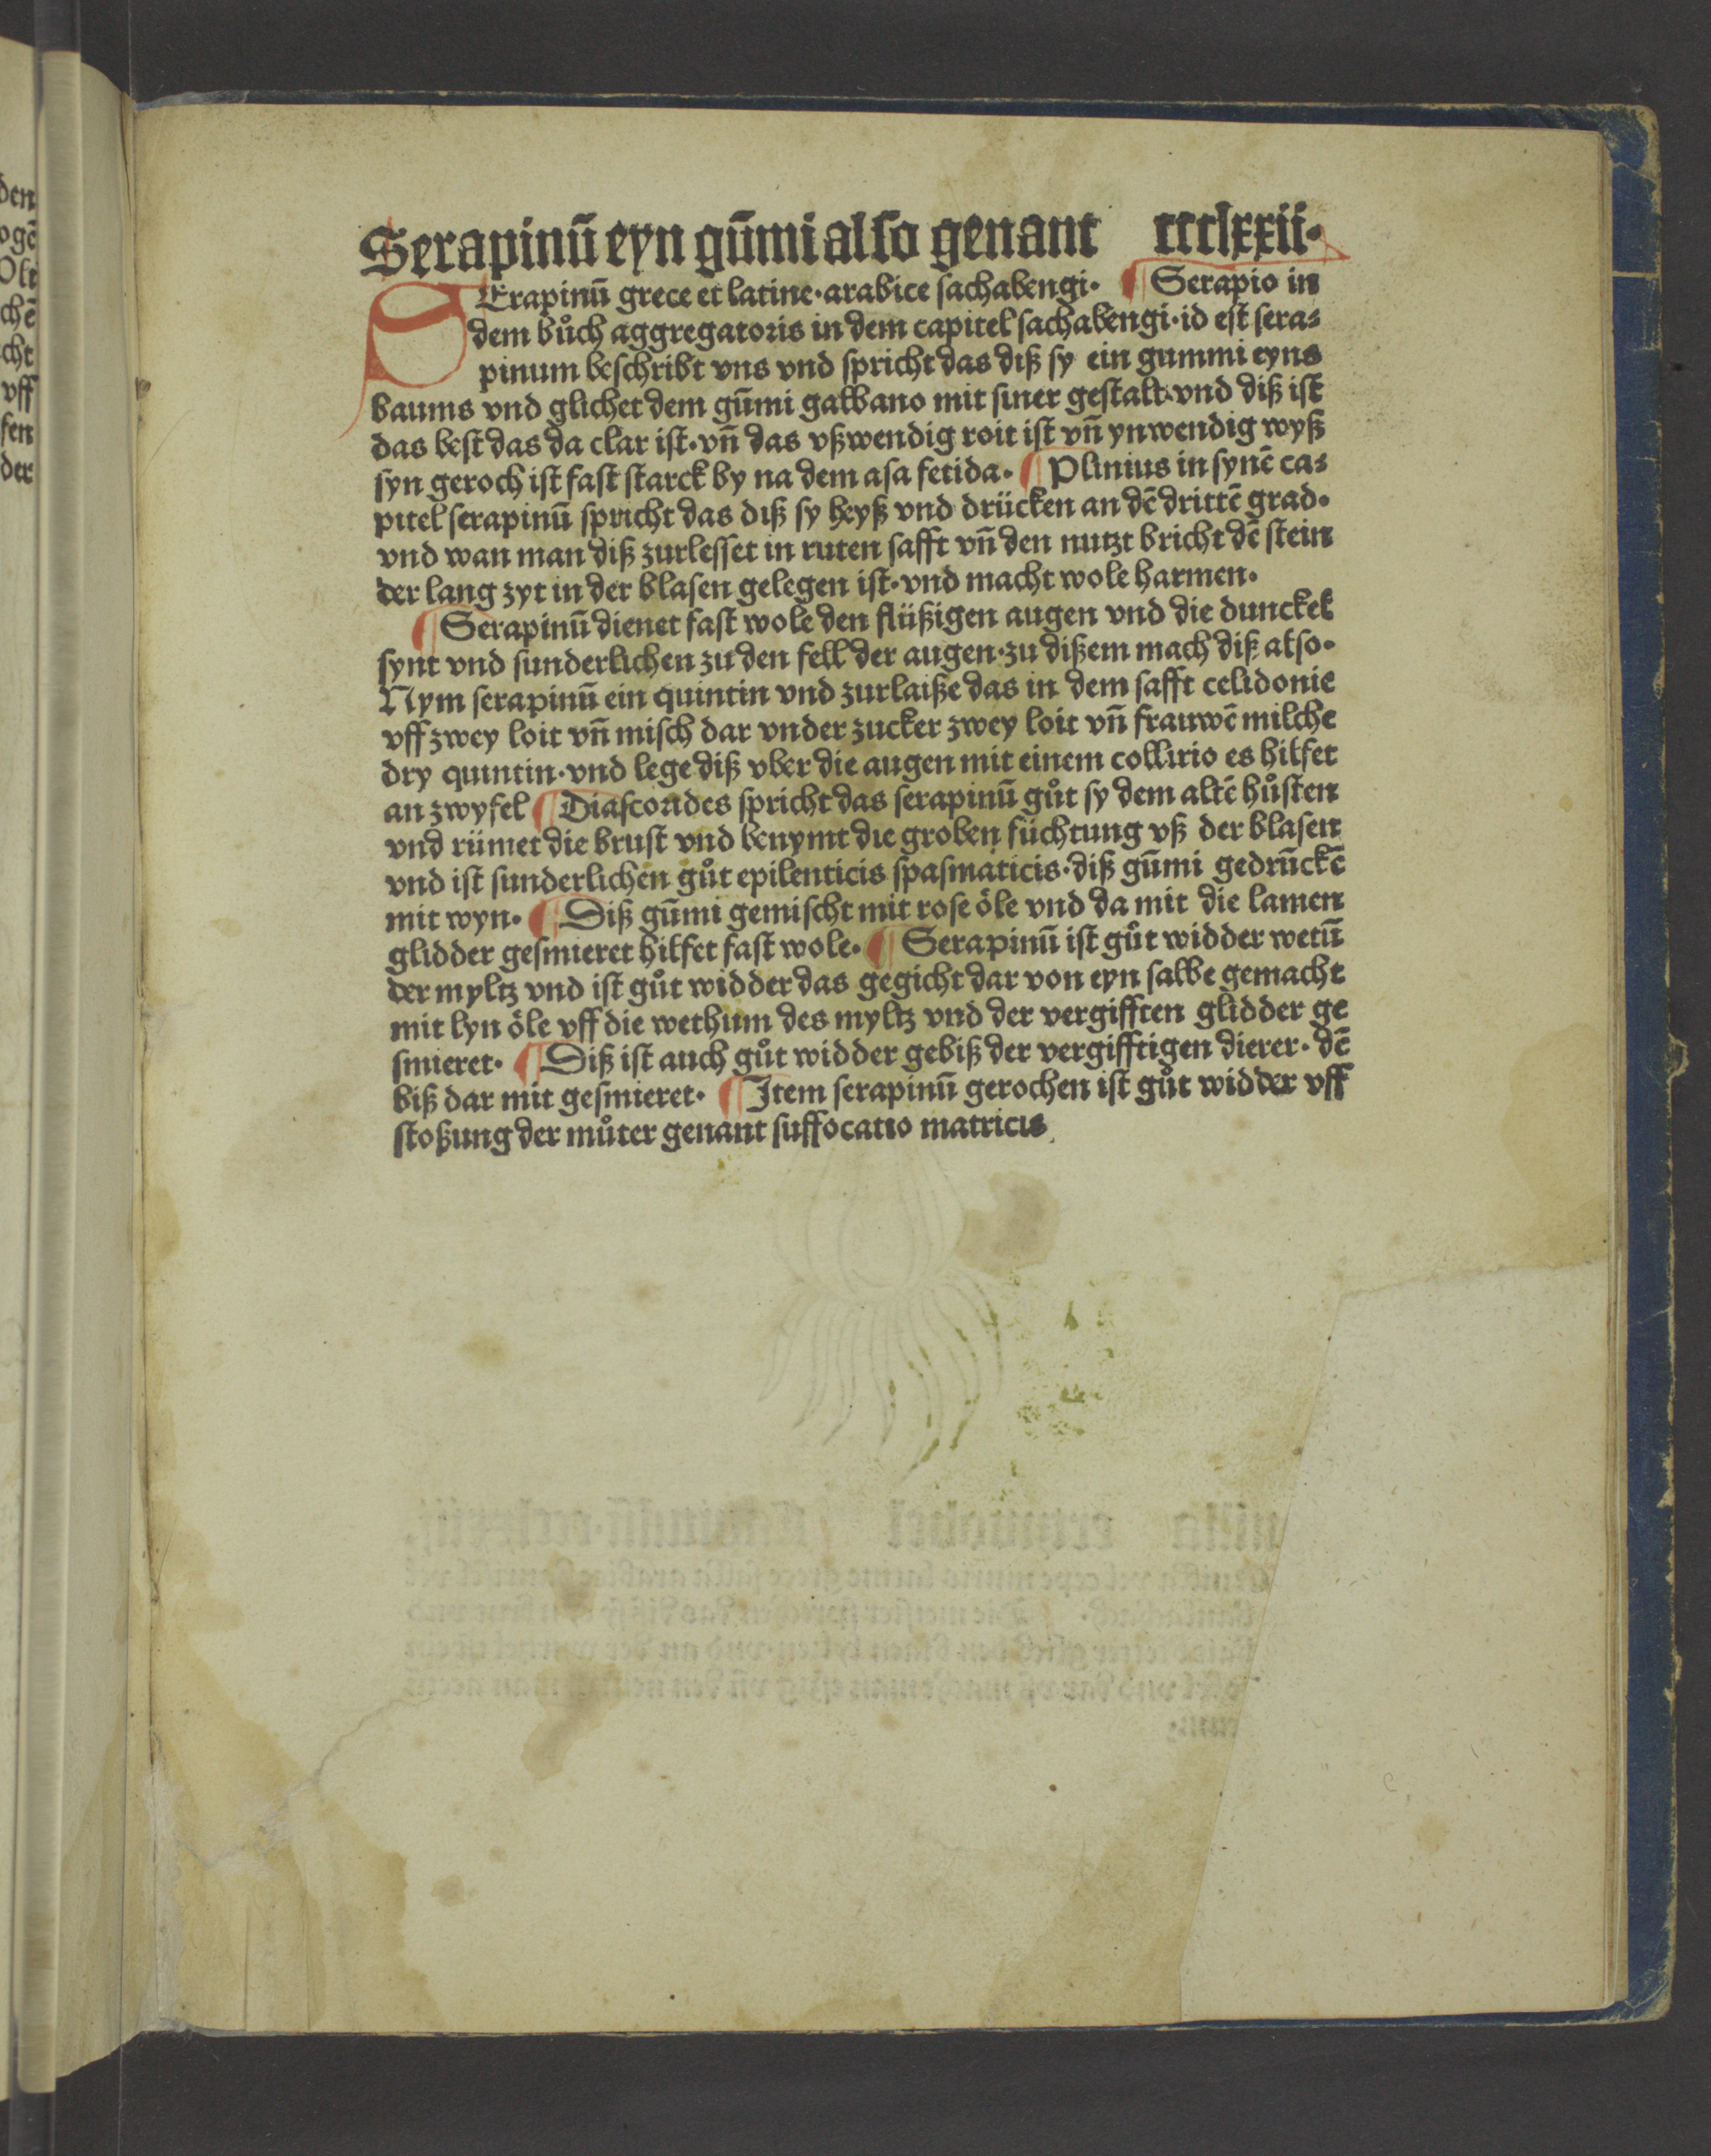 Serapinū eyn gūmi also genant ccclxxii·
SErapinū grece et latine·arabice sachabengi· ¶ Serapio in
dem bůch aggregatoris in dem capitel sachabengi·id est sera⸗
pinum beschribt vns vnd spricht das diß sy ein gummi eyns
baums vnd glichet dem gūmi galbano mit siner gestalt·vnd diß ist
das best das da clar ist·vn̄ das vßwendig roit ist vn̄ ynwendig wyß
syn geroch ist fast starck by na dem asa fetida· ¶ Plinius in synē ca⸗
pitel serapinū spricht das diß sy heyß vnd drücken an dē drittē grad·
vnd wan man diß zurlesset in ruten safft vn̄ den nutzt bricht dē stein
der lang zyt in der blasen gelegen ist·vnd macht wole harmen·
¶ Serapinū dienet fast wole den flüßigen augen vnd die dunckel
synt vnd sunderlichen zu den fell der augen·zu dißem mach diß also·
Nym serapinū ein quintin vnd zurlaiße das in dem safft celidonie
vff zwey loit vn̄ misch dar vnder zucker zwey loit vn̄ frauwē milche
dry quintin·vnd lege diß vber die augen mit einem collirio es hilfet
an zwyfel ¶ Diascorides spricht das serapinū gůt sy dem altē hůsten
vnd rümet die brust vnd benymt die groben füchtung vß der blasen
vnd ist sunderlichen gůt epilenticis spasmaticis·diß gūmi gedrūckē
mit wyn· ¶ Diß gūmi gemischt mit rose öle vnd da mit die lamen
glidder gesmieret hilfet fast wole· ¶ Serapinū ist gůt widder wetū
der myltz vnd ist gůt widder das gegicht dar von eyn salbe gemacht
mit lyn öle vff die wethum des myltz vnd der vergifften glidder ge
smieret· ¶ Diß ist auch gůt widder gebiß der vergifftigen dierer· dē
biß dar mit gesmieret· ¶ Item serapinū gerochen ist gůt widder vff
stoßung der můter genant suffocatio matricis